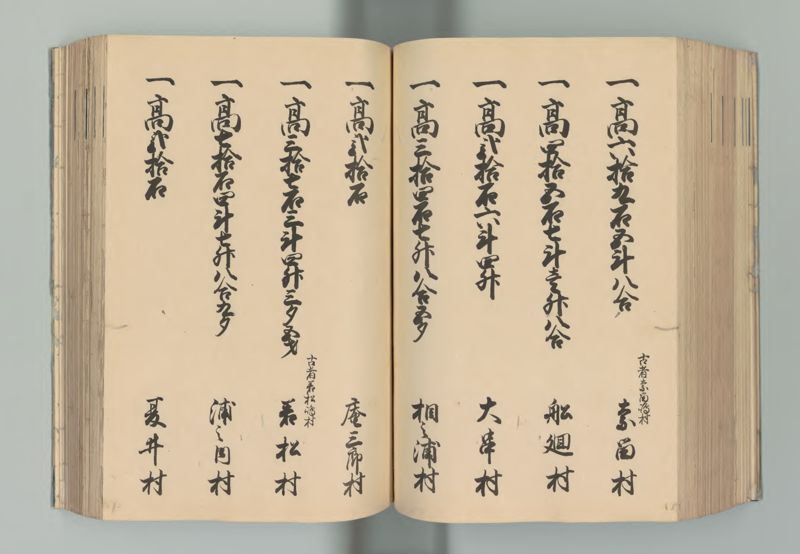 一高六拾九石五斗八合 古者奈留嶋村 奈留村
一高四拾五石七斗壱升八合 船廻村
一高弐拾石六斗四升 大串村
一高三拾四石七升八合五夕 相之浦村
一高弐拾石 庵三郎村
一高三拾七石三斗四升三夕五才 古者若松嶋村 若松村
一高七拾石四斗七升八合九夕 浦之村
一高弐拾石 夏井村